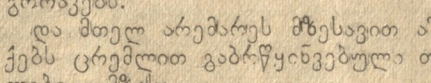 და მთელ არემარეს მზესავით
ქებს ცრემლით გაბრწყინვებულა